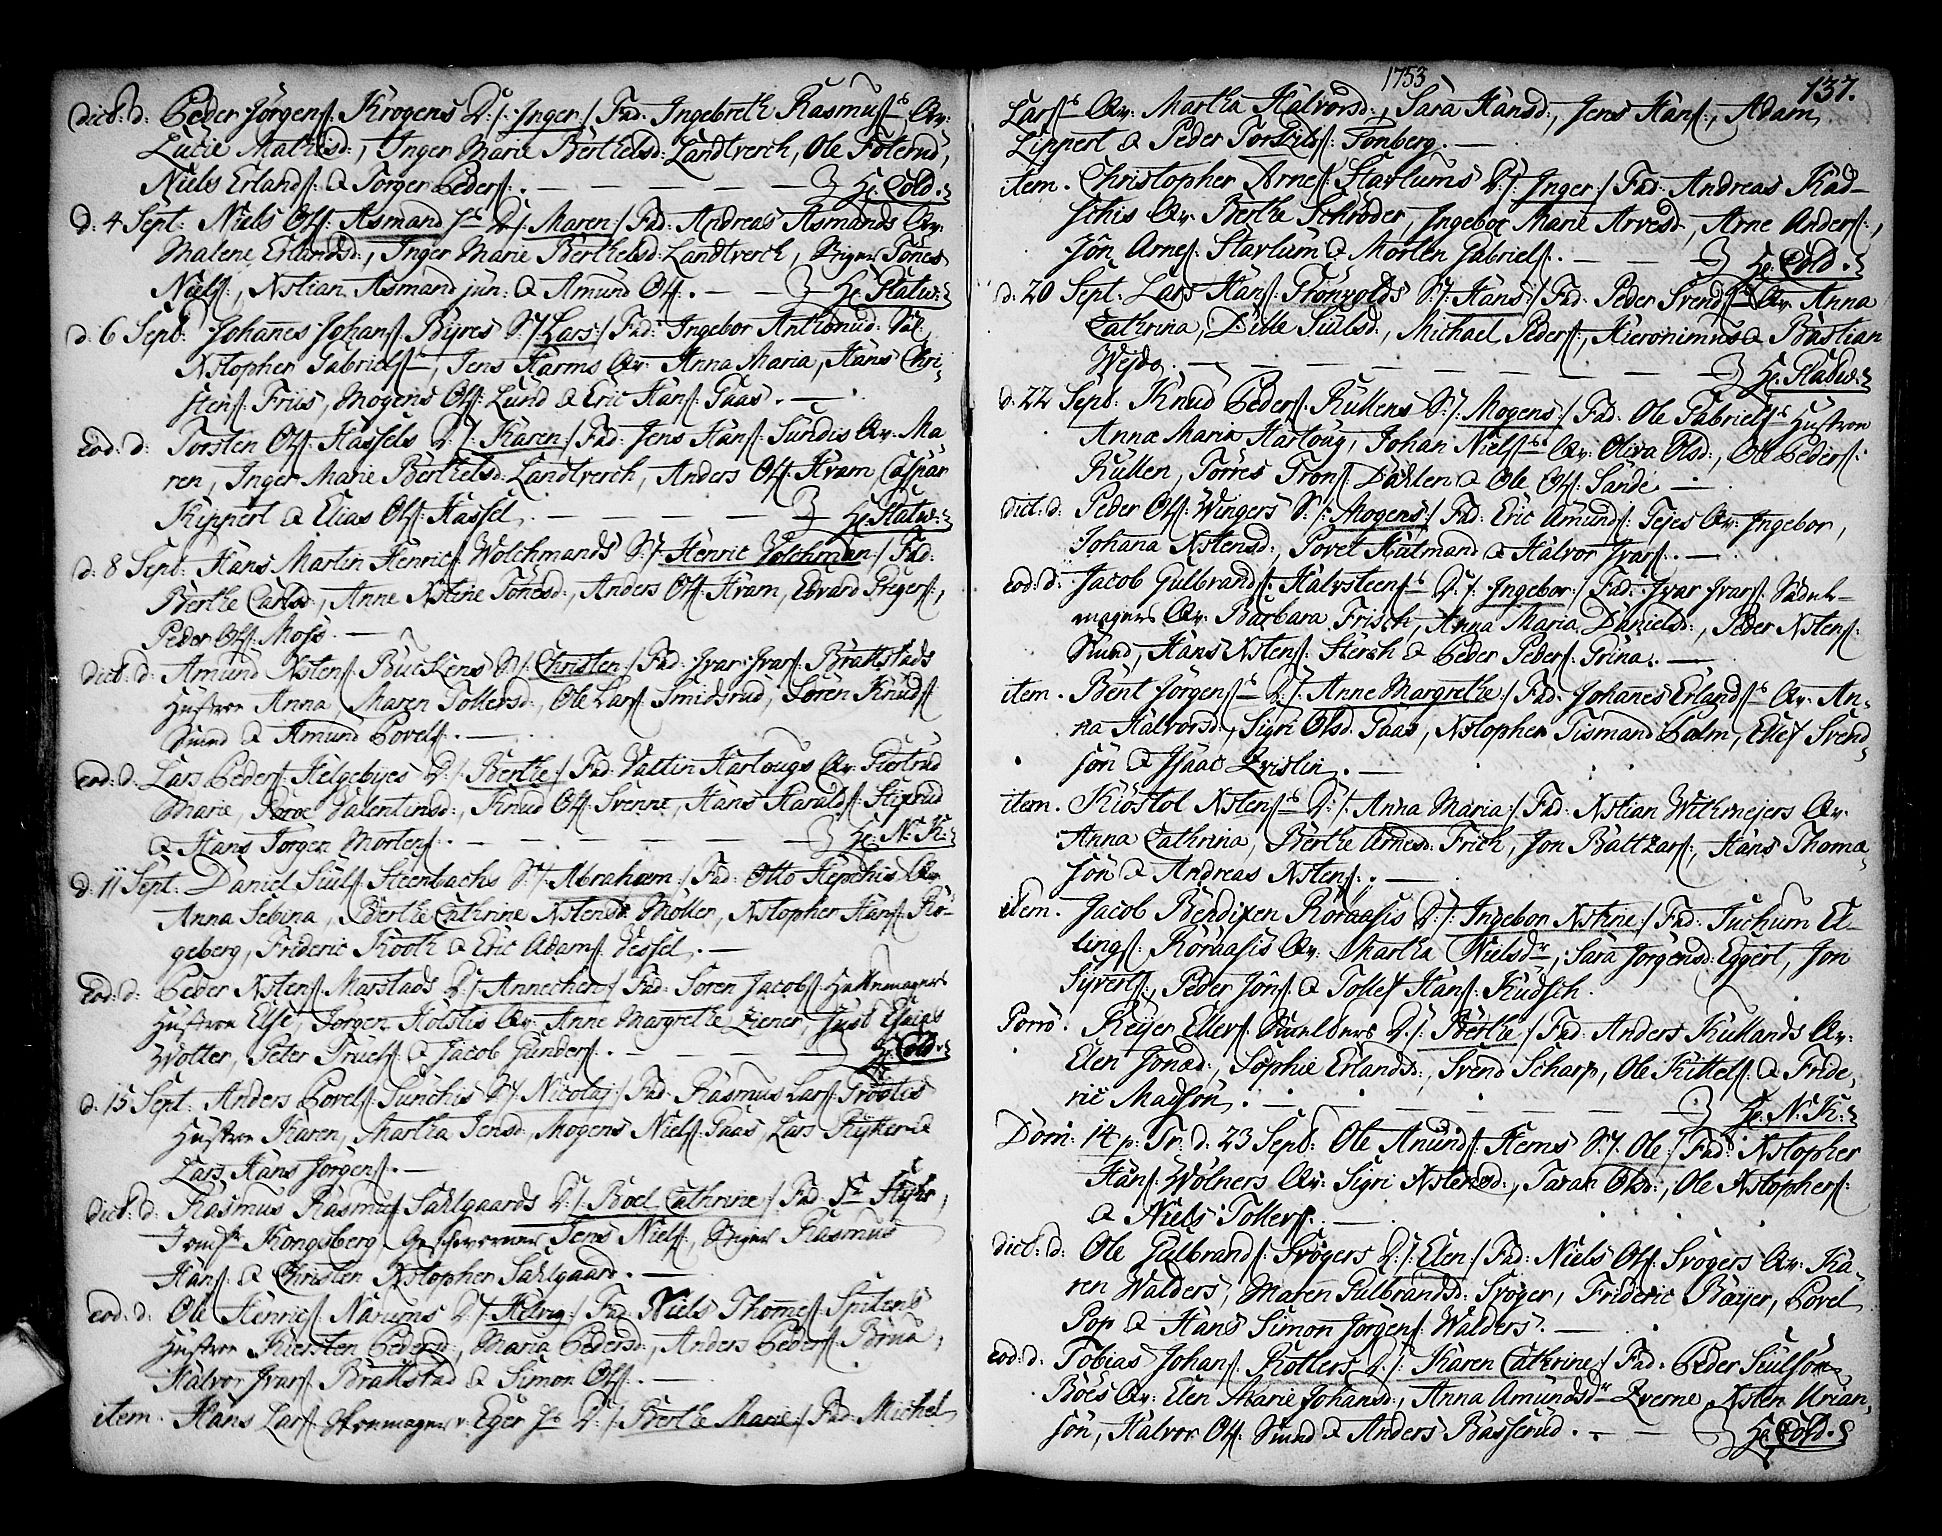 dict: d: Peder Jörgens: Krogens D: /: Inger :/ Fad: Ingebreth Rasmuss: Qv:
Lucie Mathisd:, Inger Marie Berthelsd: Landtverch, Ole Foterud,
Niels Erlands: & Torger Peders: . — Hr: Cold.
d: 4 Sept: Niels Ols: Asmand D: /: Maren :/ Fad: Andreas Asmands Qv:
Malene Erlandsd:, Inger Marie Berthelsd: Landtverch, Tönes
Niels:, Xstian Asmand jun: & Amund Ols: . — Hr: Platw:
d: 6 Sept: Johanes Johans: Byres S: /: Lars :/ Fad: Ingebor
Xstopher Gabriels:, Jens Harms Qv: Anna Maria, Hans Chri-
stens: Friis, Mogens Ols: Lund & Eric Hans: Gaas. —
eod: d: Torsten Ols: Hassels D: /: Karen :/ Fad: Jens Hans: Sundis Qv: Ma-
ren, Inger Marie Berthelsd: Landtverch, Anders Ols: Kram Casspar
Kippert & Elias Ols: Hassel. — Hr: Platw:
d: 8 Sept: Hans Martin Henrics: Wolchmands S: /: Henric Volchman :/ Fad:
Berthe Carlsd:, Anne Xstine Tönesd:, Anders Ols: Kram, Edvard
Peder Ols: Moss. —
dict: d: Amund Xstens: Buckens S: /: Christen :/ Fad: Ivar Ivars: Brattstads
Hustroe Anna, Maren Tollersd:, Ole Lars: Smidsrud, Sören Knuds:
Smed & Amund Povels: . —
eod: d: Lars Peders: Helgebyes D: /: Berthe :/ Fad: Valtin Hartougs Qv: Giertrud
Marie, Valentinsd:, Knud Ols: Svenne, Hans Haralds:
& Hans Jörgen Mortens: . — Hr: N: K:
d: 11 Sept: Daniel Siuls: Steenbachs S: /: Abraham :/ Fad: Otto Qv:
Anna Sebina, Berthe Cathrine Xstensd: Möller, Xstopher Hans: Rö-
geberg, Frideric Kooth & Eric Adams: Vessel. —
eod: d: Peder Xstens: Marstads D: /: Annechen :/ Fad: Sören Jacobs: Hattemagers
Hustroe Else, Jörgen Holstis Qv: Anne Margrethe Ziener, Just Esaias
Wolter, Peter Truels: & Jacob Gunders: . — Hr: Cold.
d: 15 Sept: Anders Povels: Funchis S: /: Nicolaj :/ Fad: Rasmus Lars:
Hustroe Karen, Martha Jensd:, Mogens Niels: Gaas, Lars
Lars Hans Jörgens: . —
dict: d: Rasmus Rasmus: Sahlgaards D: /: Boel Cathrine :/ Fad:
Kongsberg Geschworner Jens Niels:, Rasmus
Hans: & Christen Xstopher Sahlgaard. —
eod: d: Ole Henrics: Narums D: /: Helvig :/ Fad: Niels Thomes:
Hustroe Kiersten Pedersd:, Maria Pedersd:, Anders Peders: Brua,
Halvor Ivars: Brattstad & Simon Ols: . —
item. Hans Lars: Eger D: /: Berthe Marie :/ Fad: Michel
1753
137.
Lars: Qv: Martha Halvorsd:, Sara Hansd:, Jens Hans:, Adam
Lippert & Peder Torkilds: Tonberg. —
item. Christopher Arnes: Starlums D: /: Inger :/ Fad: Andreas Kad-
schis Qv: Berthe Schröder, Ingebor Marie Arvesd:, Arne Anders:,
Jön Arnes: Starlum & Morten Gabriels: . — Hr: Cold.
d: 20 Sept: Lars Hans: Grönvolds S: /: Hans :/ Fad: Peder Svends: Qv: Anna
Cathrina, Dille Siulsd:, Michael Peders:, Hieronimus & Bastian
Wejda. — Hr: Platw:
d: 22 Sept: Knud Peders: Rullens S: /: Mogens :/ Fad: Ole Gabriels: Hustroe
Anna Maria Hartoug, Johan Niels: Qv: Oliva Olsd:, Ole Peders:
Rullen, Törris Trons: Dahlen & Ole Ols: Sande. —
dict: d: Peder Ols: Wingers S: /: Mogens :/ Fad: Eric Amunds: Tejes Qv: Ingebor,
Johana Xstensd:, Povel Hulmand & Halvor Ivars: . —
eod: d: Jacob Gulbrands: Halvsteens: D: /: Ingebor :/ Fad: Ivar Ivars: Sadul-
magers Qv: Barbara Frisch, Anna Maria Danielsd:, Peder Xstens:
Smed, Hans Xstens: Sterch & Peder Peders: Grina. —
item. Bent Jörgens: D: /: Anne Margrethe :/ Fad: Johanes Erlands: Qv: An-
na Halvorsd:, Sigri Olsd: Gaas, Xstopher Tismand Holm, Ellef Svend-
sön & Isaac Zrislin. —
item. Kiöstol Xstens: D: /: Anna Maria :/ Fad: Xstian Withmejers Qv:
Anna Cathrina, Berthe Arnesd: Frich, Jon Baltzars:, Hans Thoma-
sön & Andreas Xstens: . —
item. Jacob Bendixen Röraasis D: /: Ingebor Xstine :/ Fad: Juchum El-
lings: Röraasis Qv: Martha Nielsd:, Sara Jörgensd: Eggert, Jon
Syverts:, Peder Jöns: & Tollef Hans: Kudsch.
Porro. Reyer Ellers: D: /: Berthe :/ Fad: Anders Rullands Qv:
Elen Jonæd:, Sophie Erlandsd:, Svend Scharp, Ole Kittels: & Fride-
ric Madsön. — Hr: N: K:
Dom: 14 p: Tr: d: 23 Sept: Ole Amunds: Hems S: /: Ole :/ Fad: Xstopher
Hans: Wölners Qv: Sigri Xstensd:, Taran Olsd:, Ole Xstophers:
& Niels Tollers: . —
dict: d: Ole Gulbrands: Svögers D: /: Elen :/ Fad: Niels Ols: Svögers Qv: Ka-
ren Walders, Maren Gulbrandsd: Svöger, Frideric Bæyer, Povel
Pop & Hans Simon Jörgens: Walders. —
eod: d: Tobias Johans: Kollers D: /: Karen Cathrine :/ Fad: Peder Siulsön
Böes Qv: Elen Marie Johansd:, Anna Amundsd: Zverne, Xsten Urian-
sön, Halvor Ols: Smed & Anders Basserud. — Hr: Cold.